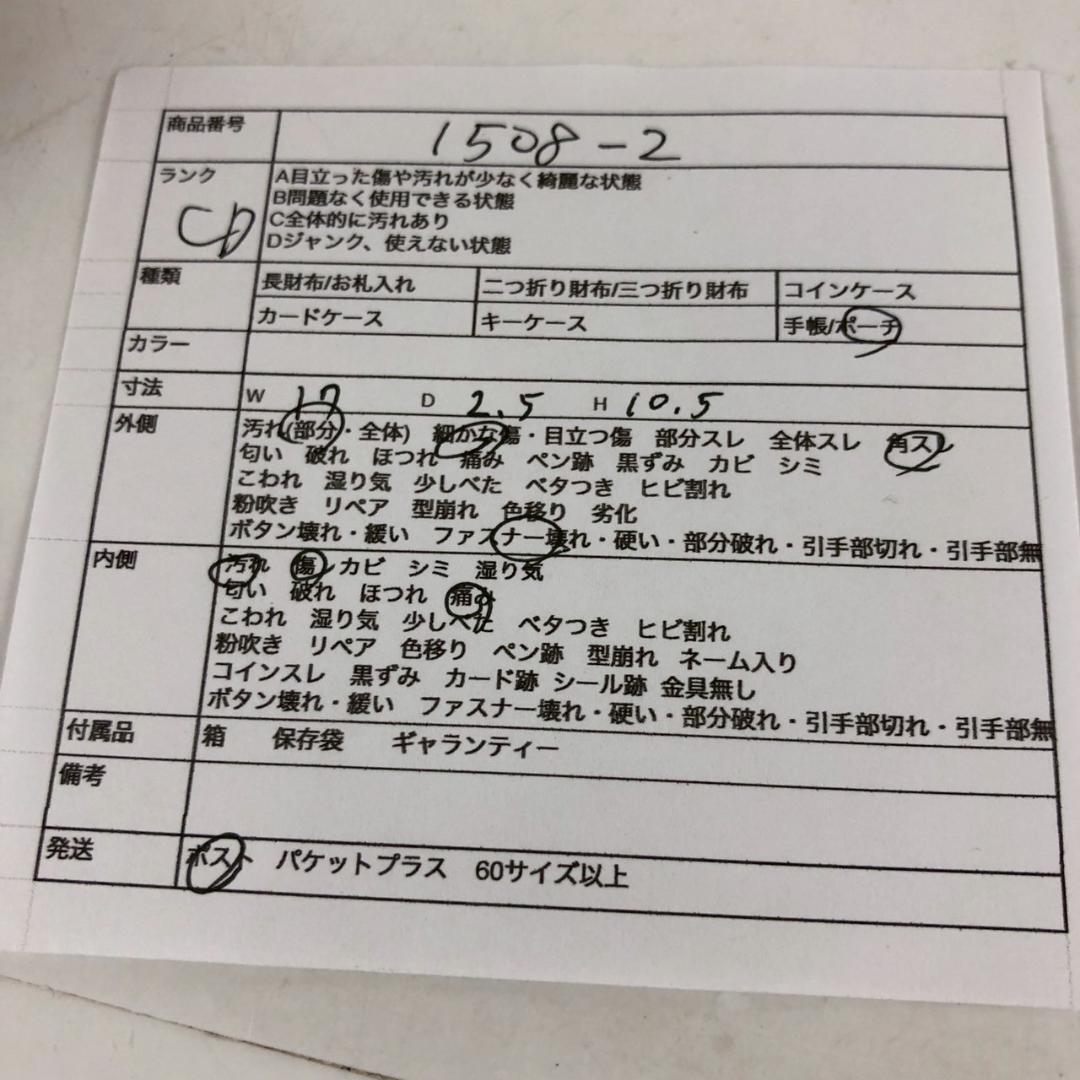 商品番号 1508-2
ランク CD
A目立った傷や汚れが少なく綺麗な状態
B問題なく使用できる状態
C全体的に汚れあり
Dジャンク、使えない状態
種類 長財布/お札入れ 二つ折り財布/三つ折り財布 コインケース
カードケース キーケース 手帳/ポーチ
カラー
寸法 W 17 D 2.5 H 10.5
外側 汚れ(部分・全体) 細かな傷・目立つ傷 部分スレ 全体スレ 角スレ
匂い 破れ ほつれ 痛み ペン跡 黒ずみ カビ シミ
こわれ 湿り気 少しべた ベタつき ヒビ割れ
粉吹き リペア 型崩れ 色移り 劣化
ボタン壊れ・緩い ファスナー壊れ・硬い・部分破れ・引手部切れ・引手部無
内側 汚れ 傷 カビ シミ 湿り気
匂い 破れ ほつれ 痛み
こわれ 湿り気 少しべた ベタつき ヒビ割れ
粉吹き リペア 色移り ペン跡 型崩れ ネーム入り
コインスレ 黒ずみ カード跡 シール跡 金具無し
ボタン壊れ・緩い ファスナー壊れ・硬い・部分破れ・引手部切れ・引手部無
付属品 箱 保存袋 ギャランティー
備考
発送 ポスト パケットプラス 60サイズ以上